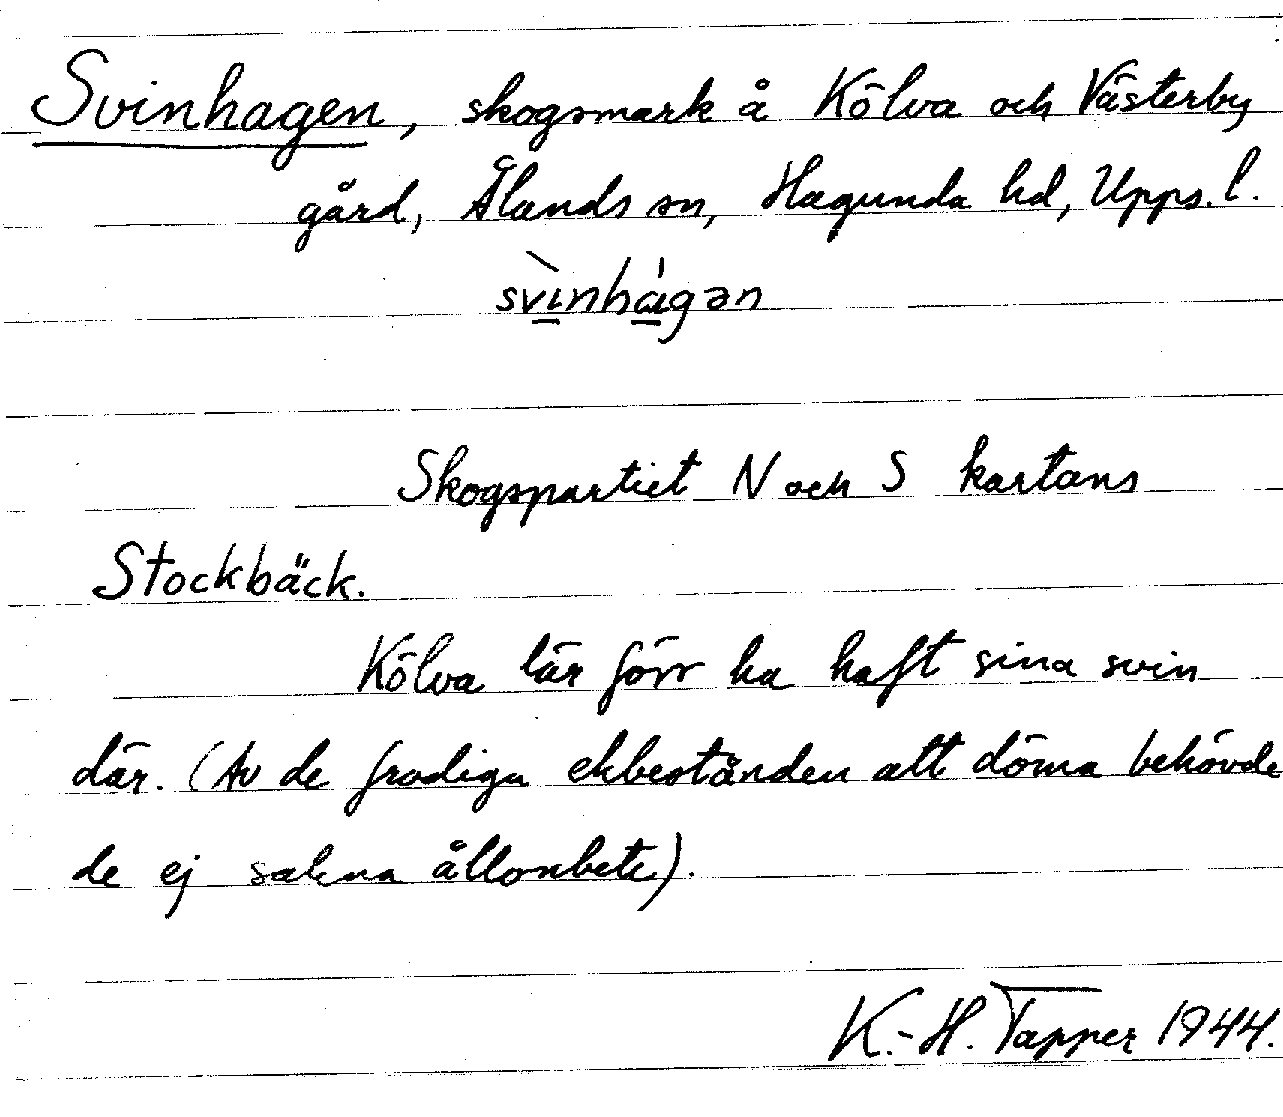 Svinhagen, skogsmark å Kölva och Västerby
gård, Ålands sn, Hagunda hd, Upps. l.
svìnhágən
Skogspartiet N och S kartans
Stockbäck.
Kölva lär förr ha haft sina svin
där. (Av de frodiga ekbestånden att döma behövde
de ej sakna ållonbete).
K.-H. Tapper 1944.